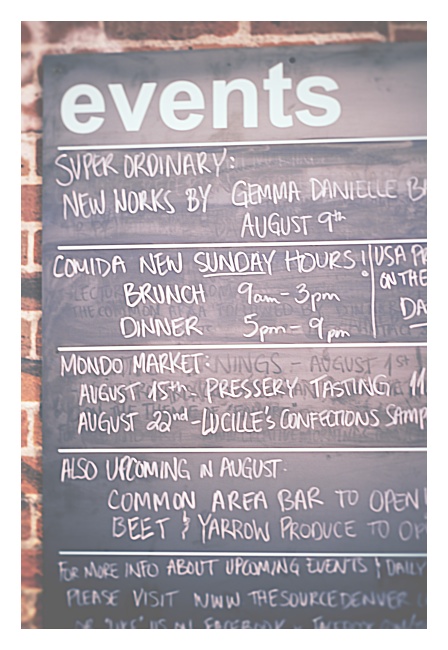 events
SUPER ORDINARY:
NEW WORKS BY GEMMA DANIELLE
AUGUST 9th
COMIDA NEW SUNDAY HOURS!
BRUNCH 9am-3pm
DINNER 5pm-9pm
USA
ON THE
DA
MONDO MARKET:
AUGUST 15th PRESSERY TASTING 11
AUGUST 22nd-LUCILLE'S CONFECTIONS SAMP
ALSO UPCOMING IN AUGUST.
COMMON AREA BAR TO OPEN
BEET & YARROW PRODUCE TO OP
FOR MORE INFO ABOUT UPCOMING EVENTS & DAILY
PLEASE VISIT WWW THESOURCEDENVER
OR "LIKE" US ON FACEBOOK - FACEBOOK.COM/